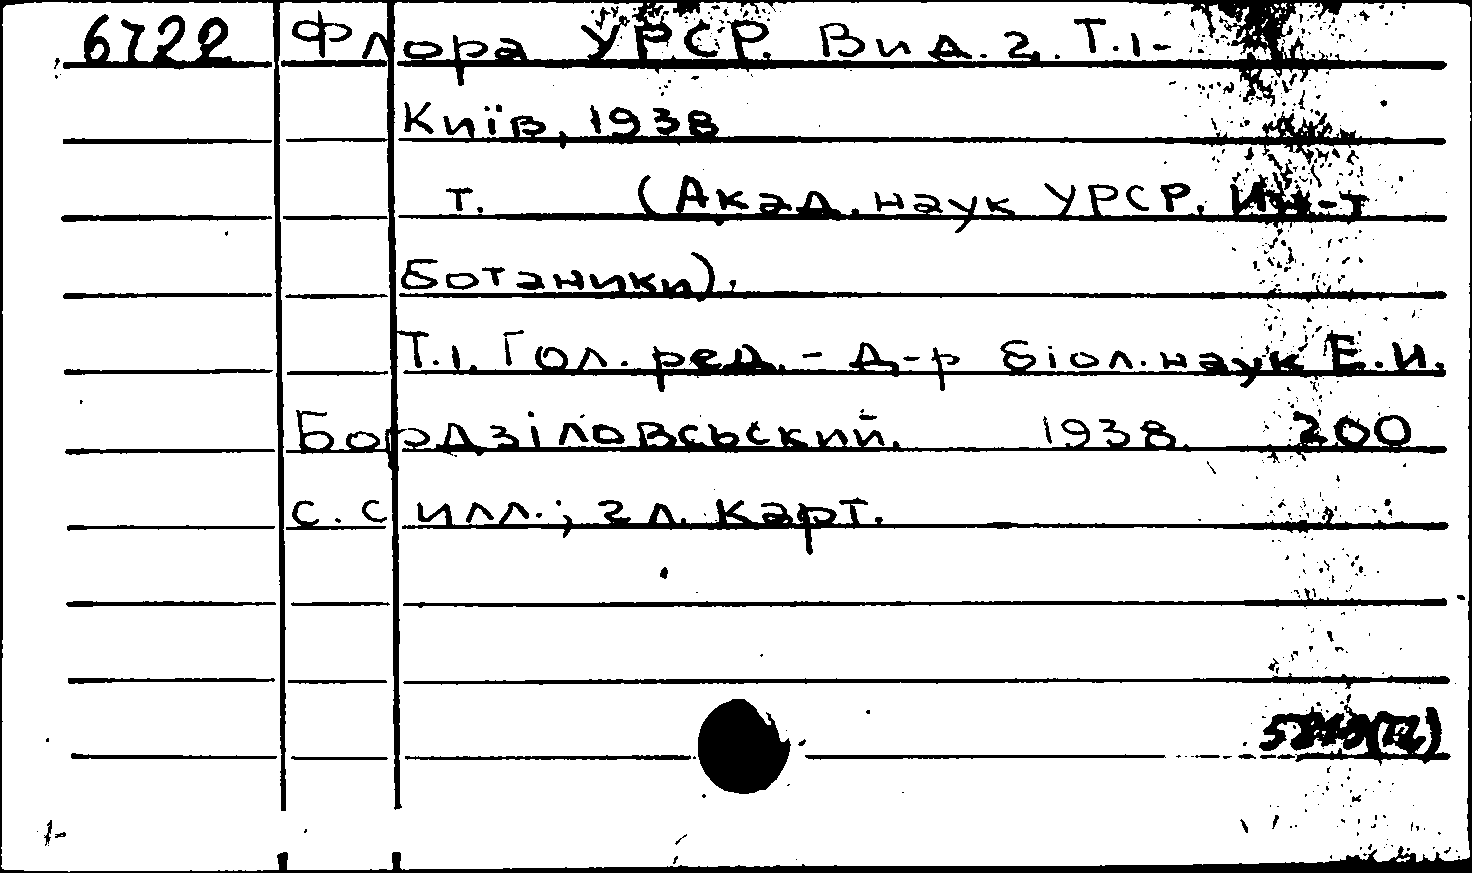 6722 Флора УРСР. Вид. 2. Т.1-
Київ, 1938
т. (Акад. наук УРСР. Ин-т
ботаники).
Т.1. Гол. ред. - д-р біол. наук Е.И.
Бордзіловський. 1938. 200
с. с илл.; 2 л. карт.